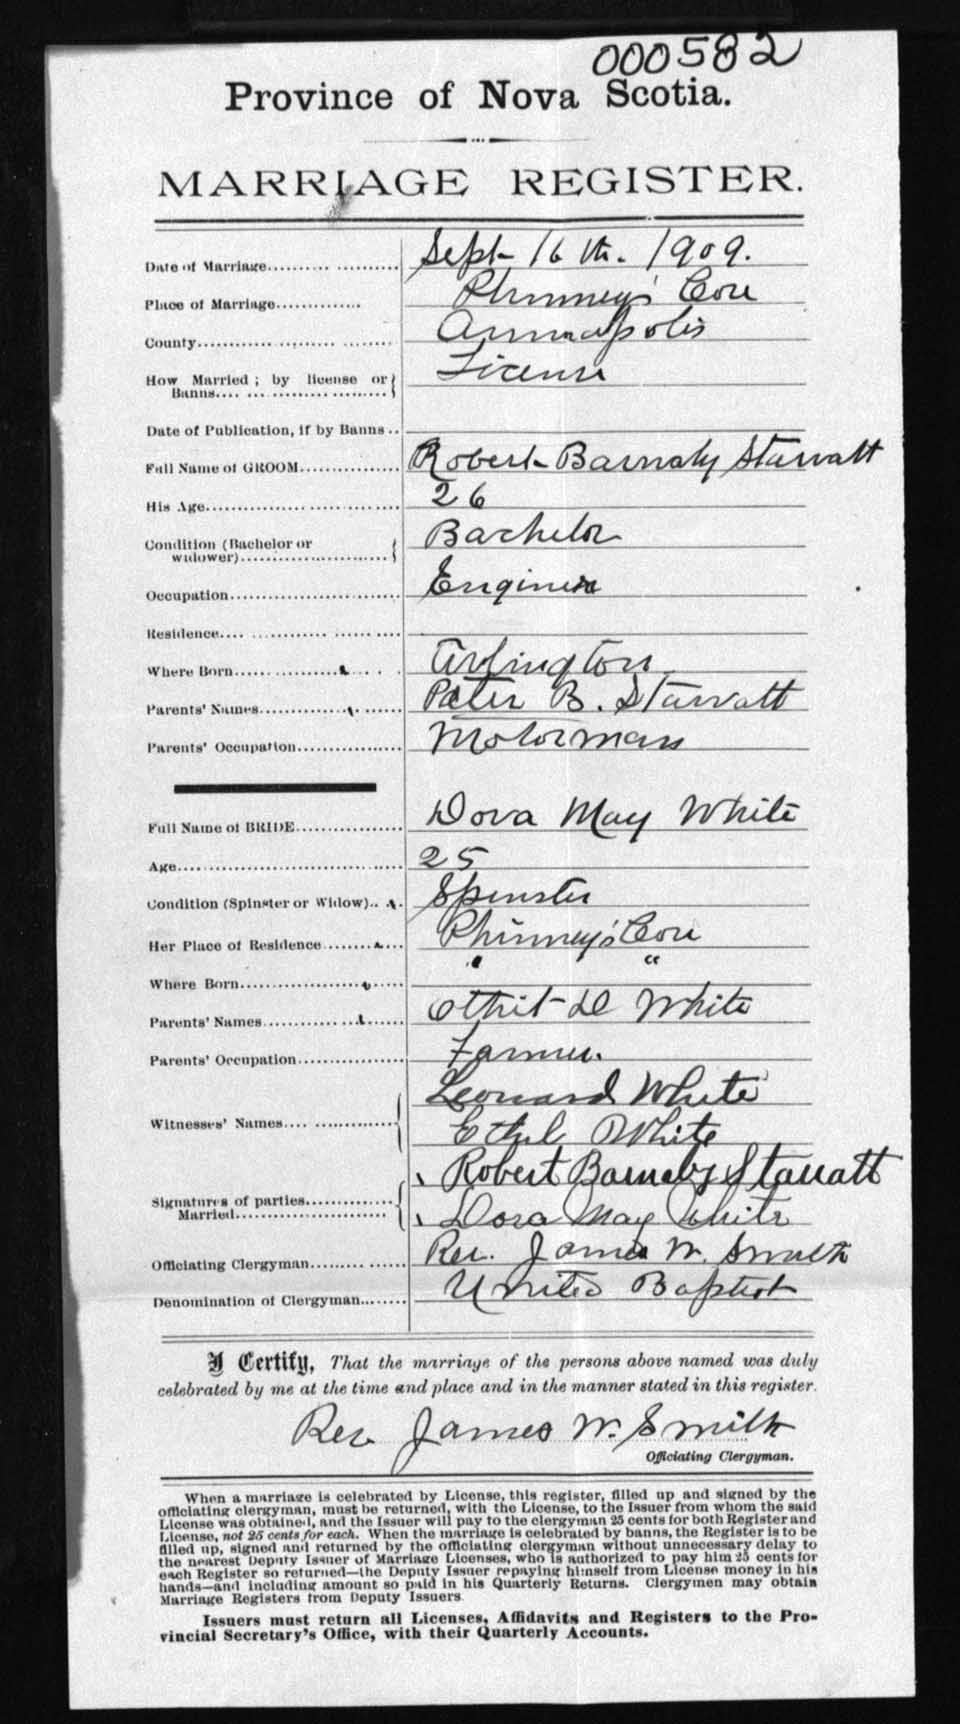 000582
Province of Nova Scotia.
MARRIAGE REGISTER.
Date of Marriage.......... Sept 16th. 1909.
Place of Marriage............. Phinney's Cove
County............................ Annapolis
How Married ; by license or
Banns........................ License
Date of Publication, if by Banns ..
Full Name of GROOM................ Robert Barnaby Starratt
His Age............................... 26
Condition (Bachelor or
widower)......................... Bachelor
Occupation............................ Engineer
Residence............................
Where Born.................... Arlington
Parents' Names.................... Peter B. Starratt
Parents' Occupation................ Motorman
Full Name of BRIDE................. Dora May White
Age................................... 25
Condition (Spinster or Widow).... Spinster
Her Place of Residence............ Phinney's Cove
Where Born...................... " "
Parents' Names.................... D White
Parents' Occupation................ Farmer.
Witnesses' Names.................. Leonard White
Ethel White
Signatures of parties............... Robert Barnaby Starratt
Married........................ Dora May White
Officiating Clergyman............... Rev. James W. Smith
Denomination of Clergyman........ United Baptist
I Certify, That the marriage of the persons above named was duly
celebrated by me at the time and place and in the manner stated in this register.
Rev. James W. Smith
Officiating Clergyman.
When a marriage is celebrated by License, this register, filled up and signed by the
officiating clergyman, must be returned, with the License, to the Issuer from whom the said
License was obtained, and the Issuer will pay to the clergyman 25 cents for both Register and
License, not 25 cents for each. When the marriage is celebrated by banns, the Register is to be
filled up, signed and returned by the officiating clergyman without unnecessary delay to
the nearest Deputy Issuer of Marriage Licenses, who is authorized to pay him 25 cents for
each Register so returned—the Deputy Issuer repaying himself from License money in his
hands—and including amount so paid in his Quarterly Returns. Clergymen may obtain
Marriage Registers from Deputy Issuers
Issuers must return all Licenses, Affidavits and Registers to the Pro-
vincial Secretary's Office, with their Quarterly Accounts.